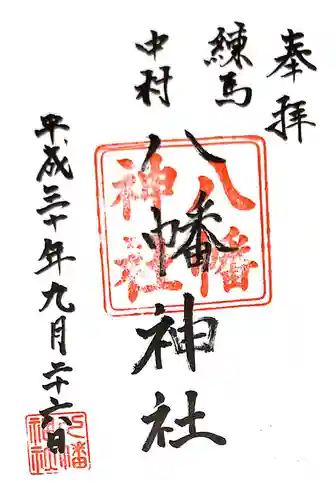 奉拝
練馬
中村
八幡神社
平成三十年九月二十六日
八幡
神社
八幡
神社